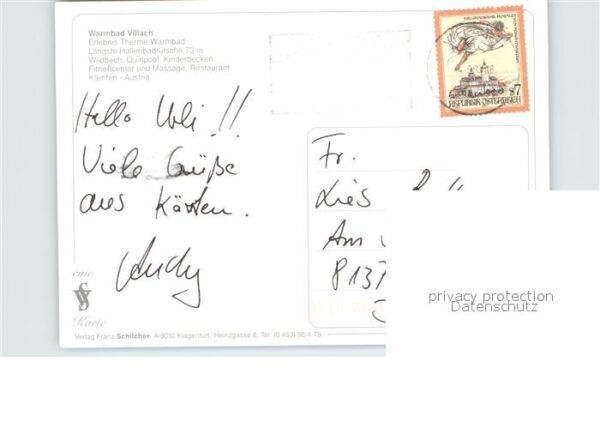 Warmbad Villach
Erlebnis Therme Warmbad
Längste Hallenbadrutsche 73 m
Wildbach, Quirlpool, Kinderbecken,
Fitneßcenter und Massage, Restaurant
Kärnten - Austria
S7
REPUBLIK ÖSTERREICH
Hallo Uli !!
Viele Grüße
aus Kärnten.
Andy
Fr.
Am
8137
eine
Karte
Verlag Franz Schilcher, A-9010 Klagenfurt, Heinzgasse 8, Tel. (0 463) 56 4 76
privacy protection
Datenschutz